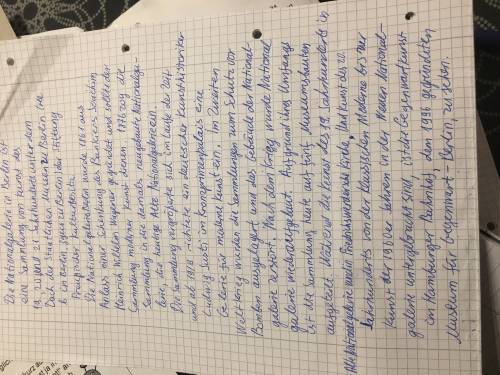 Die Nationalgalerie in Berlin ist
eine Sammlung von Kunst des
19. 20 und 21. Jahrhunderts unter dem
Dach der Staatlichen Museen zu Berlin
in der Stiftung
Preußischer Kulturbesitz.
Die Nationalgalerie wurde 1861 aus
Anlass einer Schenkung des Bankiers Joachim
Heinrich Wilhelm Wagener gegründet und sollte der
Sammlung moderner Kunst dienen. 1876 zog die
Sammlung in die damals neugebaute Nationalgale-
rie, die heutige Alte Nationalgalerie ein.
Die Sammlung vergrößerte sich im Laufe der Zeit
und ab 1918 richtete ein deutscher Kunsthistoriker
Ludwig Justi im Kronprinzenpalais eine
Galerie für moderne Kunst ein. Im Zweiten
Weltkrieg wurden die Sammlungen zum Schutz vor
Bomben ausgelagert und das Gebäude der National-
galerie zerstört. Nach dem Krieg wurde National
galerie wiederaufgebaut. Aufgrund ihres Umfangs
ist die Sammlung heute auf fünf Museumsbauten
aufgeteilt. Während die Kunst des 19. Jahrhunderts in
Alte Nationalgalerie und in Friedrichswerdersche Kirche, und Kunst des 20.
Jahrhunderts von der klassischen Moderne bis zur
Kunst der 1960er Jahren in der Neuen National-
galerie untergebracht sind, ist die Gegenwartkunst
im Hamburger Bahnhof, dem 1996 gegründeten
Museum für Gegenwart - Berlin, zu sehen.